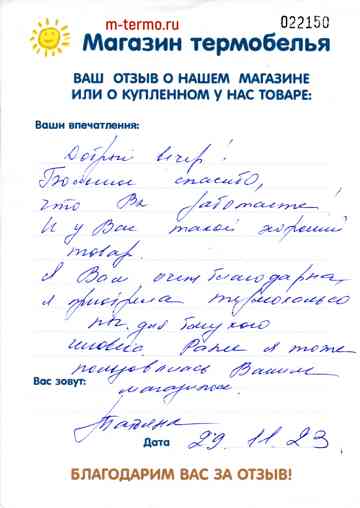 m-termo.ru
022150
Магазин термобелья
ВАШ ОТЗЫВ О НАШЕМ МАГАЗИНЕ
ИЛИ О КУПЛЕННОМ У НАС ТОВАРЕ:
Ваши впечатления:
Добрый вечер!
Большое спасибо,
что Вы работаете!
И у Вас такой хороший
товар.
Я Вам очень благодарна,
я приобрела термокальсо
ны для близкого
человека. Ранее я тоже
пользовалась Вашим
Вас зовут:
магазином.
Татьяна
Дата 29.11.23
БЛАГОДАРИМ ВАС ЗА ОТЗЫВ!